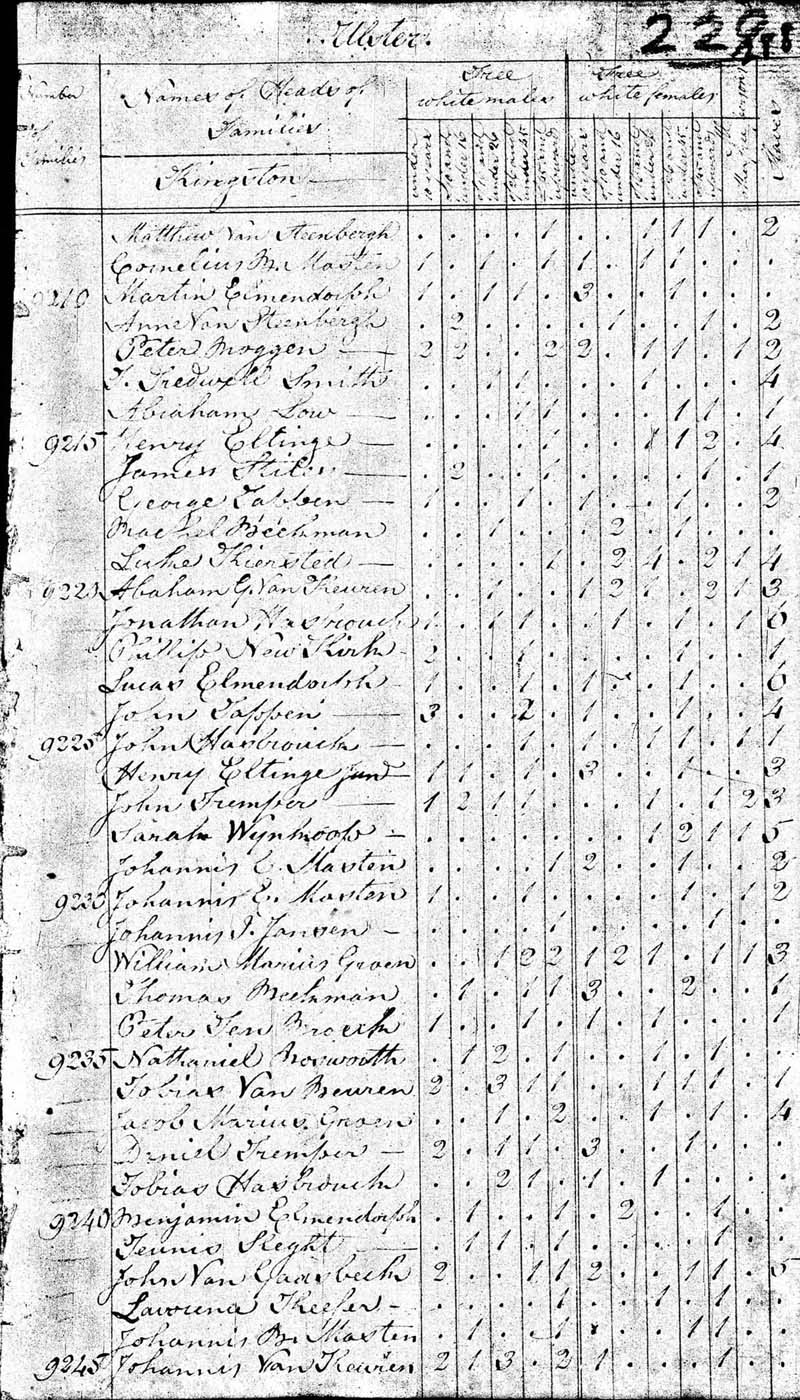 Ulster.
229
Number of Families
Names of Heads of Families
Free white males
Free white females
Kingston
under 10 years
10 and under 16
16 and under 26
26 and under 45
45 and upwards
under 10 years
10 and under 16
16 and under 26
26 and under 45
45 and upwards
Slaves
Matthew Van Steenbergh . . . . 1 . . 1 1 1 . 2
Cornelius B. Masten 1 . 1 . 1 1 . 1 1 . . .
9210 Martin Elmendorph 1 . 1 1 . 3 . . 1 . . .
Anne Van Steenbergh . 2 . . . . 1 . . 1 . 2
Peter Moggen 2 2 . . 2 2 . 1 1 . 1 2
T. Tredwell Smith . . 1 1 . . . 1 . . . 4
Abraham Low . . . 1 1 . . . 1 1 . 1
9215 Henry Eltinge . . . . 1 . . 1 1 2 . 4
James Stiles . 2 . . 1 . . . . 1 . 1
George Tappen 1 . . 1 . 1 . . 1 . . 2
Rachel Beekman . . 1 . . . 2 . 1 . . .
Luke Kiersted . . . . 1 . 2 4 . 2 1 4
Abaham G. Van Keuren . . 1 . . 1 2 1 . 2 1 3
Jonathan Hasbrouck 1 . 1 1 . . 1 . 1 . 1 6
Phillip New Kirk 2 . . 1 . . . . 1 . . 1
Lucas Elmendorph 1 . . 1 . 1 . . 1 . . 6
John Tappen 3 . . 2 . 1 . . 1 . . 4
9225 John Hasbrouck . . . 1 . 1 . 1 1 . 1 1
Henry Eltinge Junr 1 1 . 1 . 3 . . 1 . . 3
John Tremper 1 2 1 1 . . . 1 . 1 2 3
Sarah Wynkoop . . . . . . . 1 2 1 1 5
Johannis C. Masten . . . . 1 2 . . 1 . . 2
9230 Johannis E. Masten 1 . . 1 . . . . 1 . 1 2
Johannis J. Jansen . . . . 1 . . . . 1 . .
William Marius Groen . . 1 2 2 1 2 1 . 1 1 3
Thomas Beekman . 1 . 1 1 3 . . 2 . . 1
Peter Ten Broeck 1 . . 1 . 1 . 1 . . . 1
9235 Nathaniel Bosworth . 1 2 . 1 . . 1 . 1 . .
Tobias Van Beuren 2 . 3 1 1 . . 1 1 1 . 1
Jacob Marius Groen . . 1 . 2 . . 1 . 1 . 4
Daniel Tremper 2 . 1 1 . 3 . . 1 . . .
Tobias Hasbrouck . . 2 1 . 1 . 1 . . . .
9240 Benjamin Elmendorph . 1 . . 1 . 2 . . 1 . .
Teunis Sleght . 1 1 . 1 . . . . 1 . .
John Van Gaasbeek 2 . . 1 1 2 . . 1 1 . 5
Keefer . . . . 1 . . 1 . 1 . .
Johannis B. Masten . 1 . . 1 . . . 1 1 . .
9245 Johannis Van Keuren 2 1 3 . 2 1 . . . 1 . .